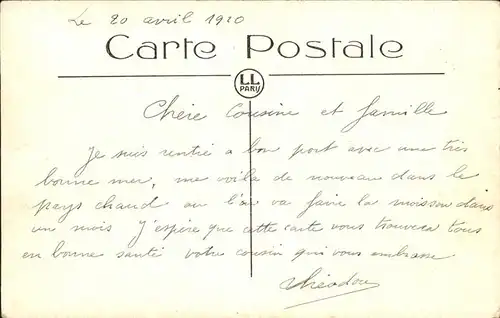 Le 20 avril 1920
Carte Postale
LL
PARIS
Chère Cousine et famille
Je suis rentré a bon port avec une très
bonne mer, me voila de nouveau dans le
pays chaud ou l'on va faire la moisson dans
un mois J'espère que cette carte vous trouvera tous
en bonne santé votre cousin qui vous embrasse
Théodore